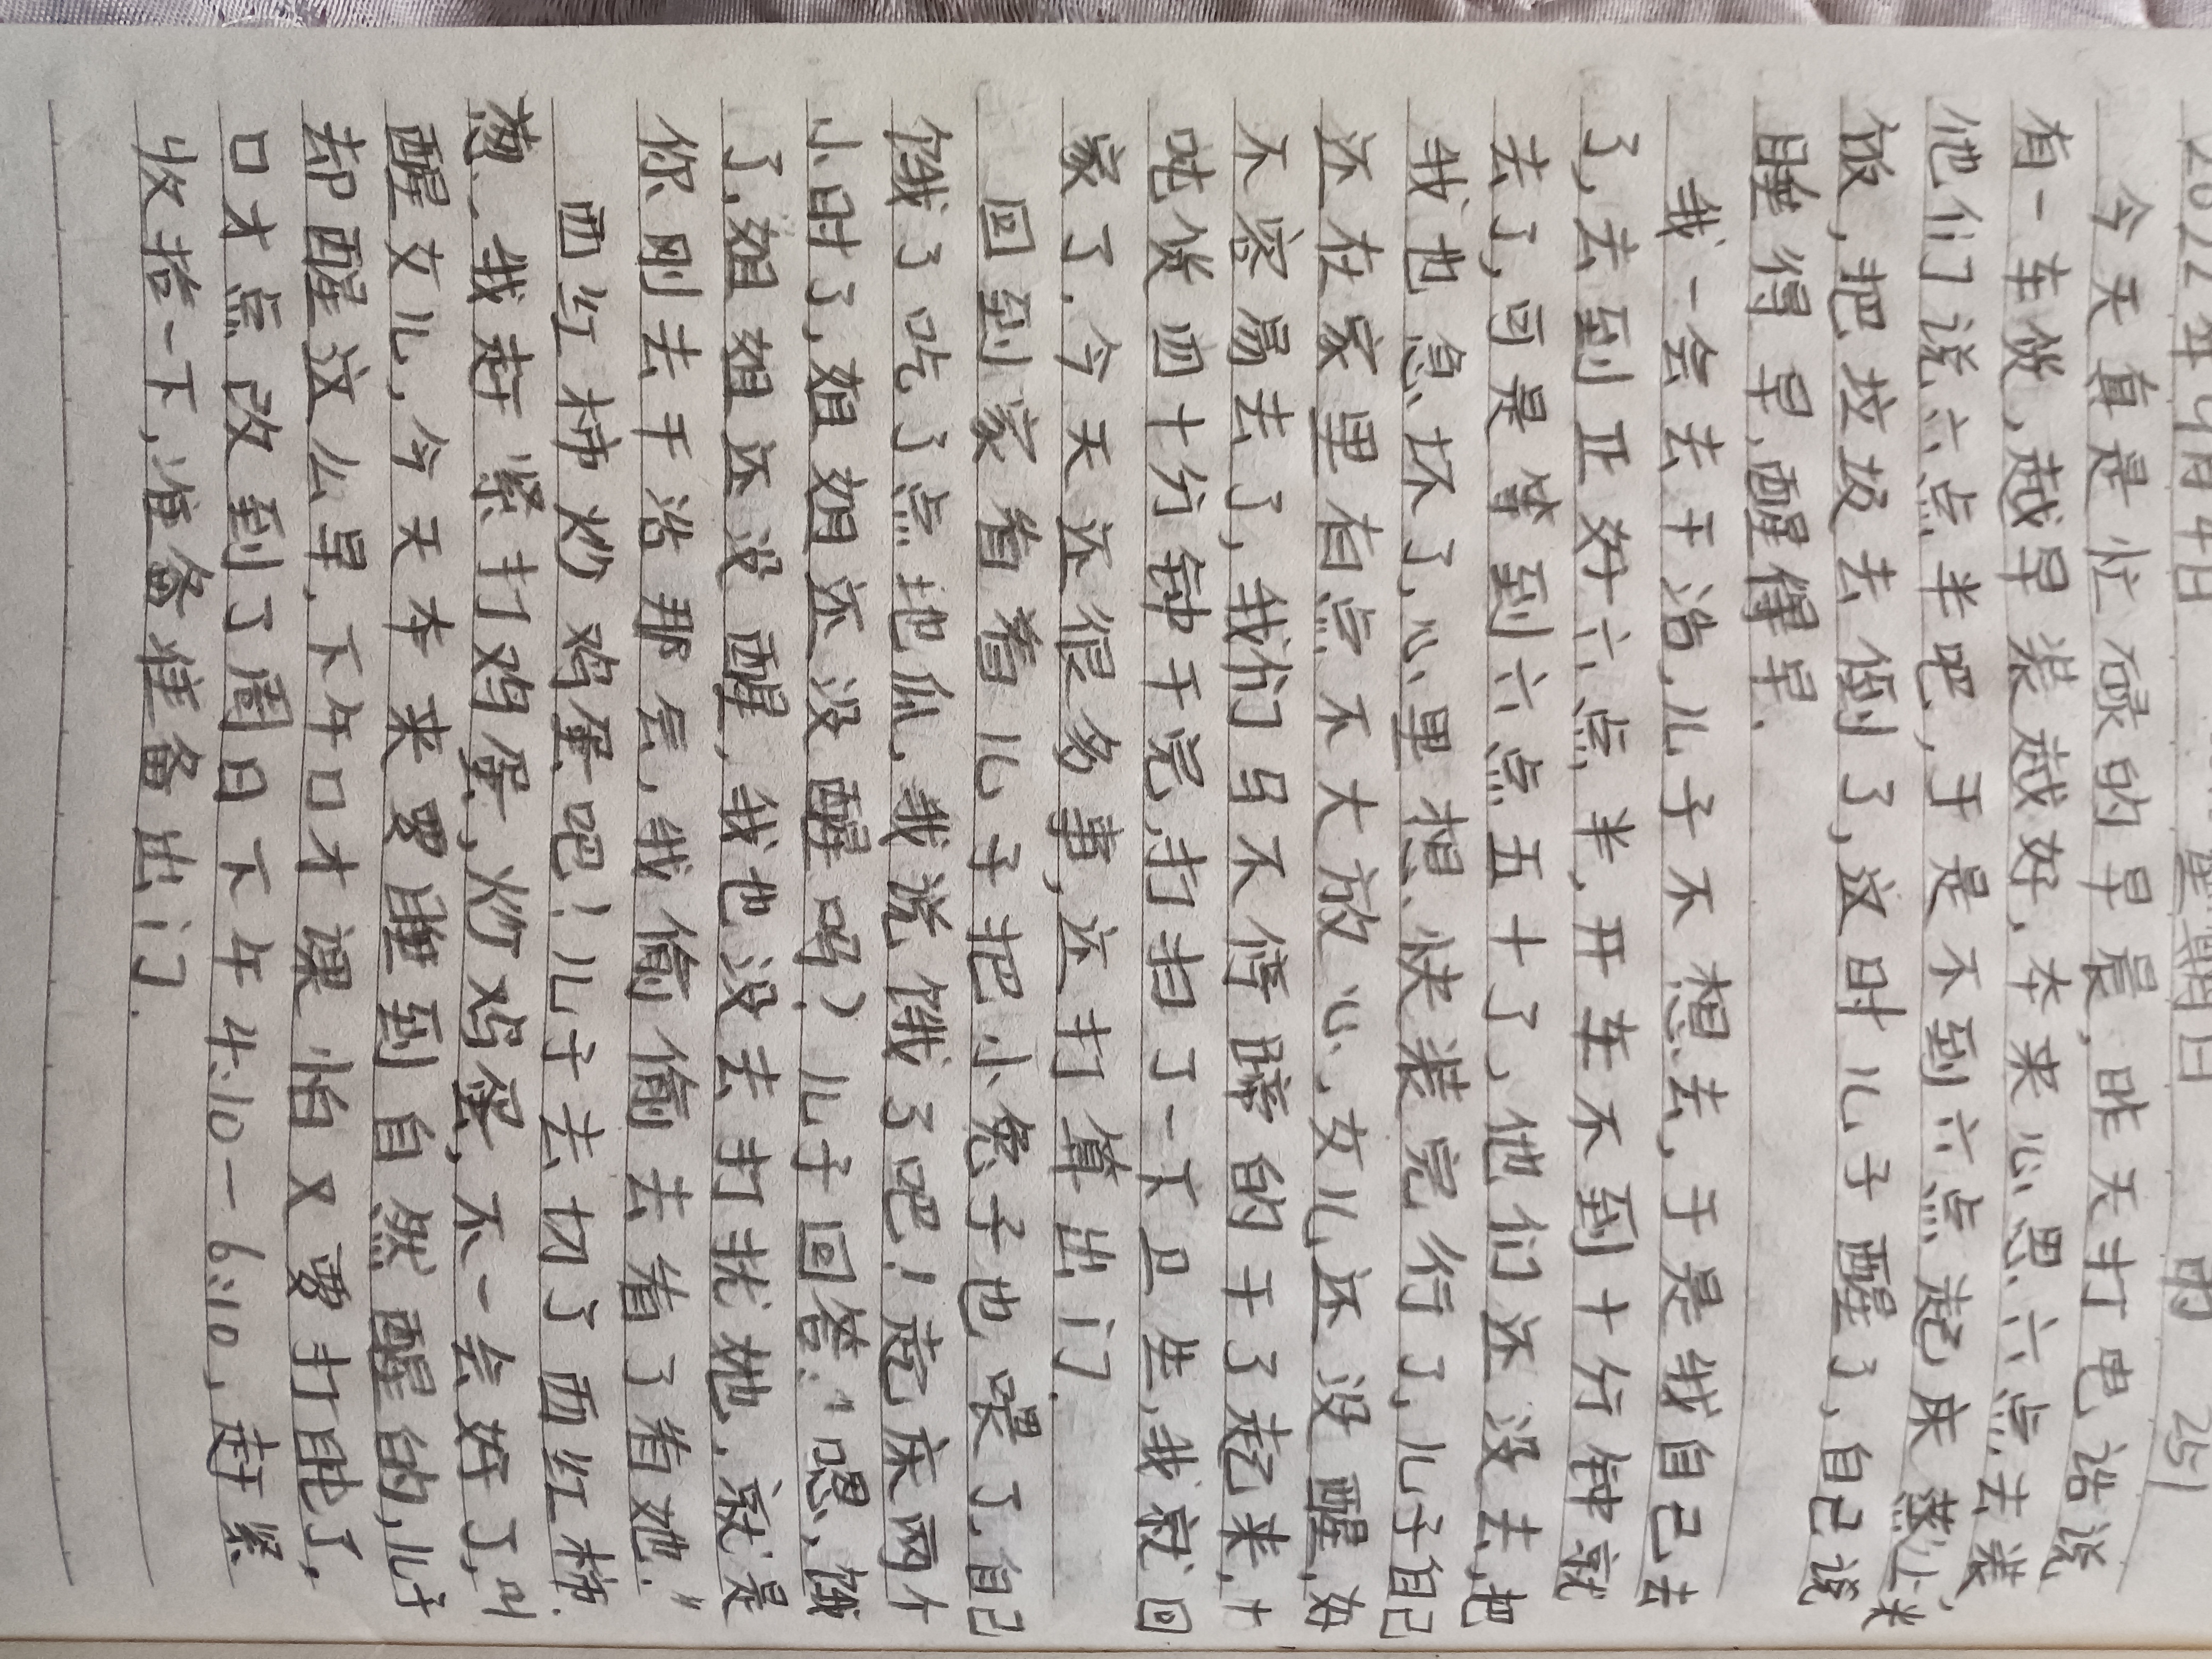 2022年4月4日 星期四 雨 251
今天真是忙碌的早晨,昨天打电话说
有一车货,越早装越好,本来心思六点去装,
他们说六点半吧,于是不到六点起床熬小米
饭,把垃圾去倒了,这时儿子醒了,自己说
睡得早,醒得早.
我一会去干活,儿子不想去,于是我自己去
了,去到正好六点半,开车不到十分钟就
去了,可是等到六点五十了,他们还没去,把
我也急坏了,心里想,快装完行了,儿子自己
还在家里有点不大放心,女儿还没醒,好
不容易去了,我们马不停蹄的干了起来,十
吨货四十分钟干完,打扫了一下卫生,我就回
家了.今天还很多事,还打算出门.
回到家看着儿子把小兔子也喂了,自己
饿了吃了点地瓜,我说饿了吧!起床两个
小时了,姐姐还没醒吗?儿子回答:"嗯,饿
了,姐姐还没醒,我也没去打扰她,就是
你刚去干活那会,我偷偷去看了看她."
西红柿炒鸡蛋吧!儿子去切了西红柿.
葱、我赶紧打鸡蛋,炒鸡蛋,不一会好了,叫
醒女儿,今天本来要睡到自然醒的,儿子
却醒这么早,下午口才课怕又要打盹了,
口才点改到了周日下午4:10-6:10,赶紧
收拾一下,准备准备出门.